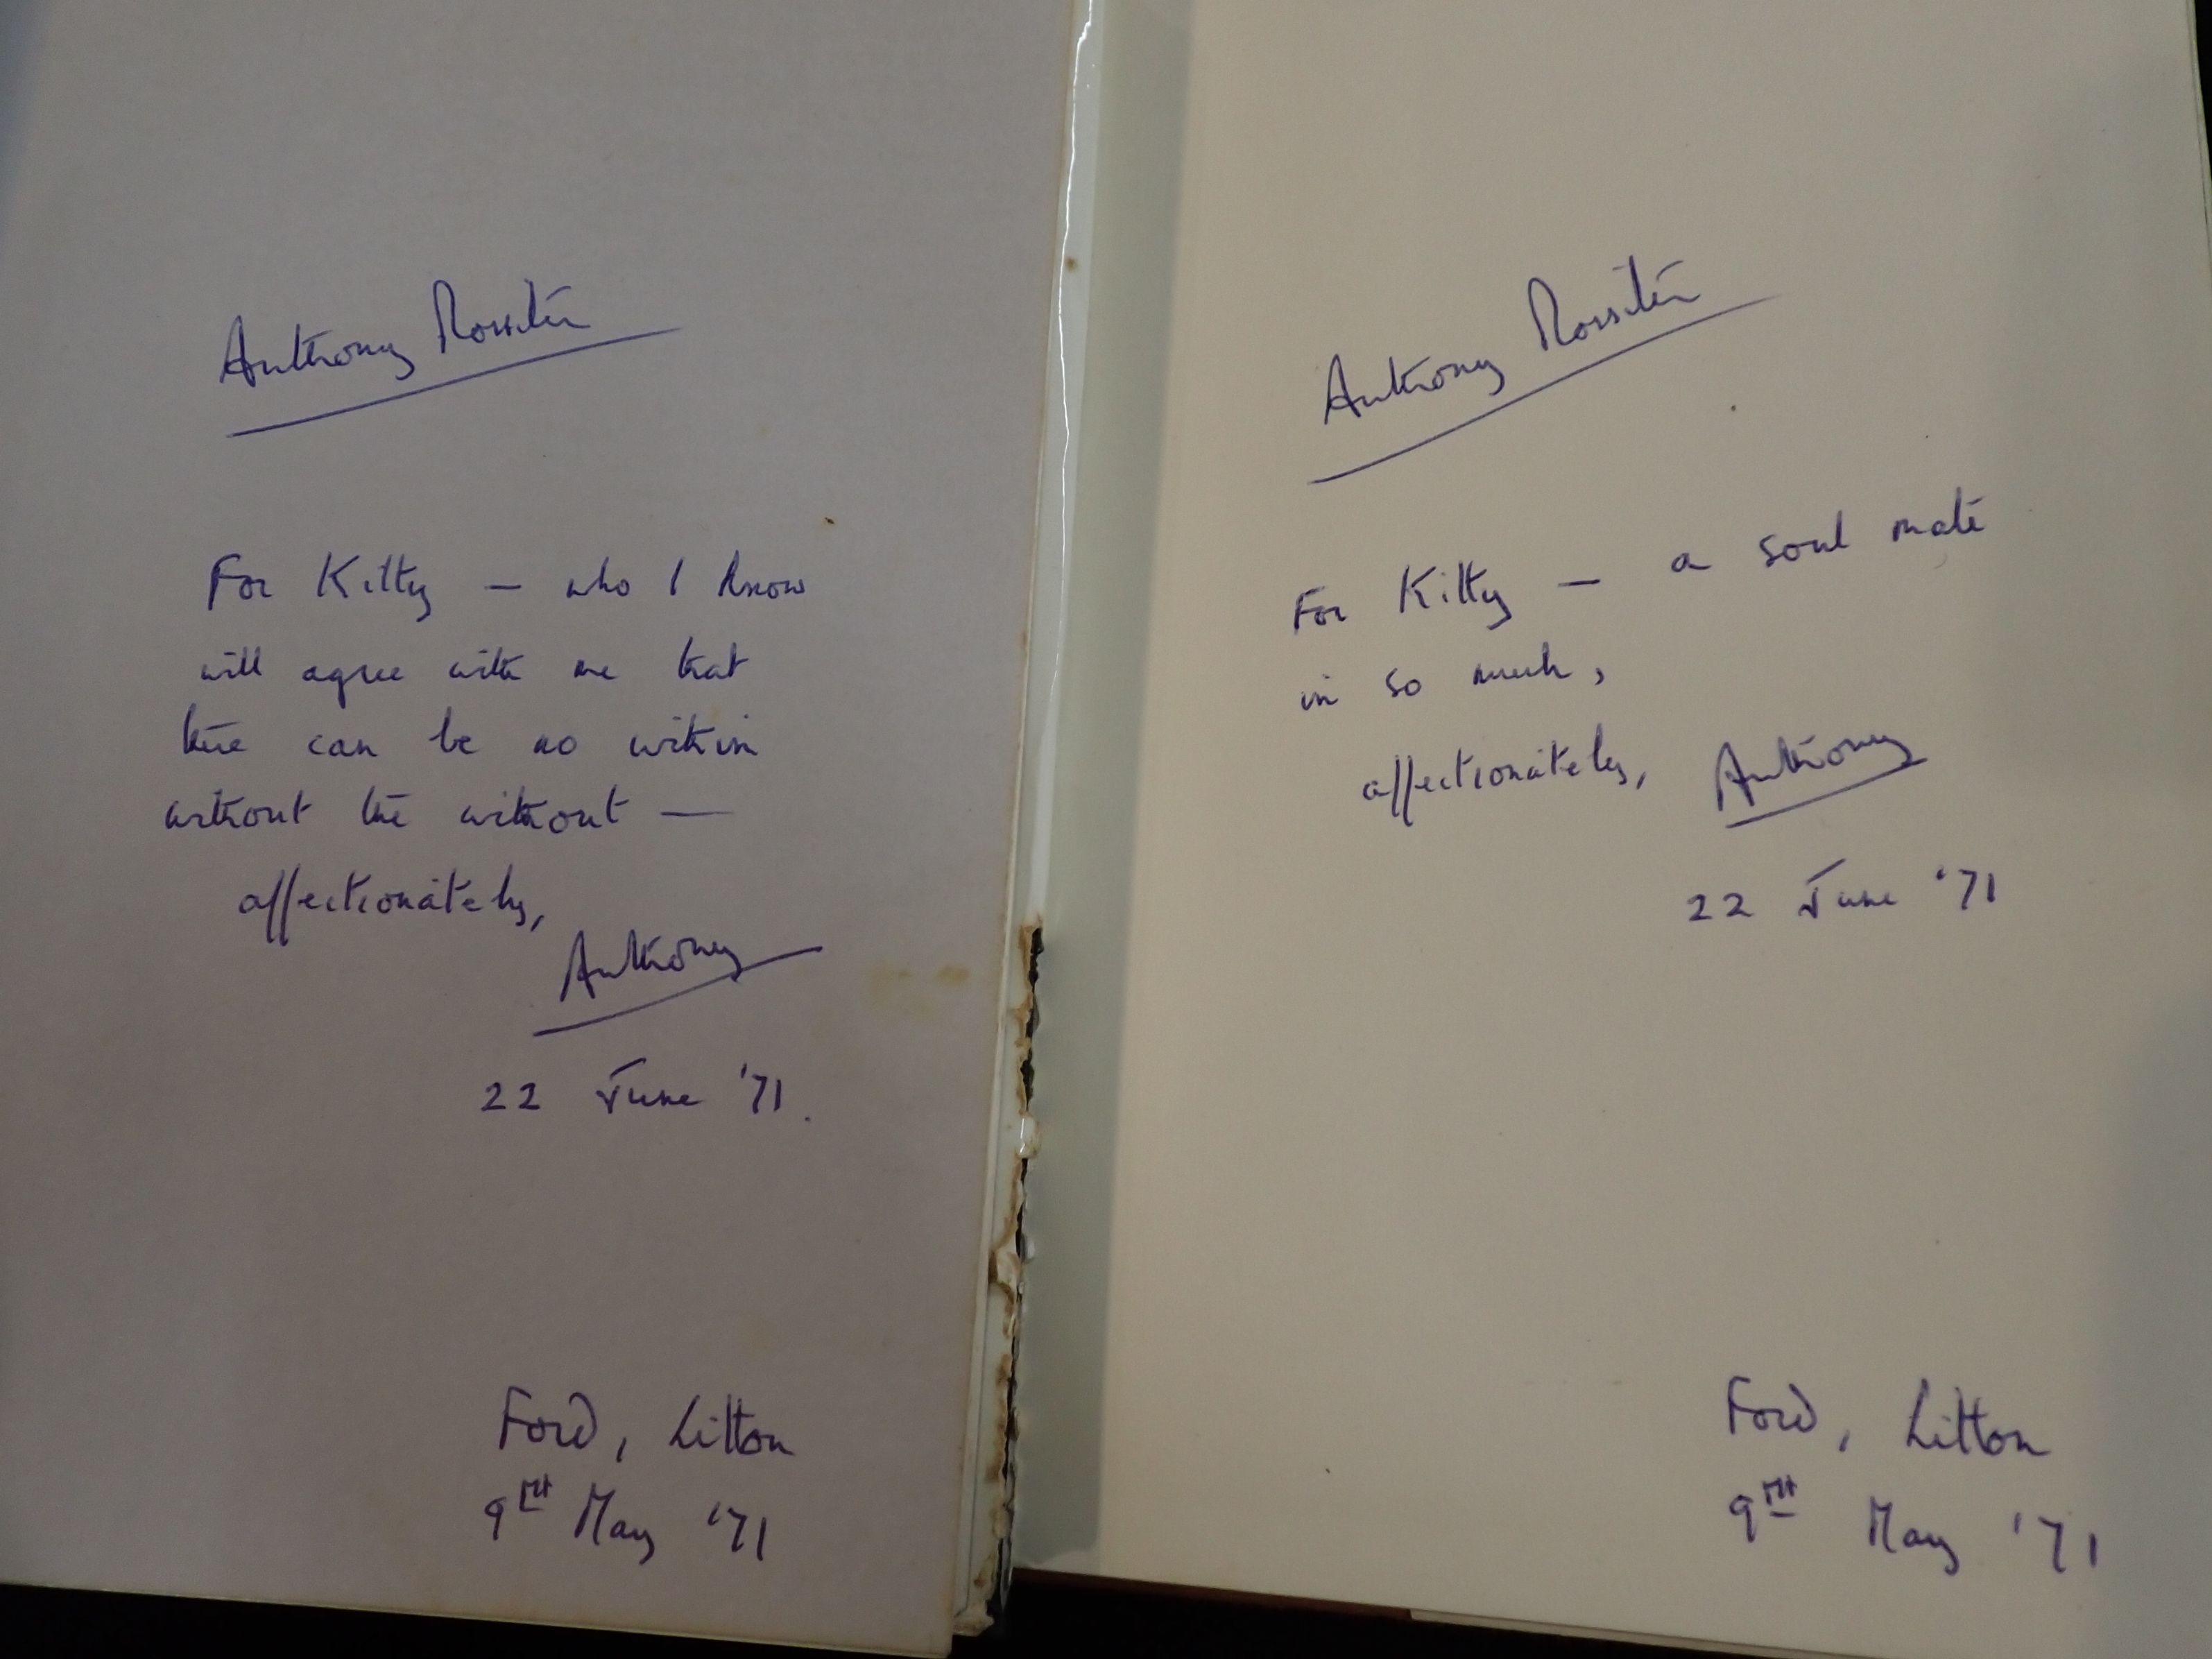 Anthony Rossiter
For Kitty — who I know
will agree with me that
there can be no within
without the without —
affectionately,
Anthony
22 June '71.
Ford, Litton
9TH May '71
Anthony Rossiter
For Kitty — a soul mate
in so much,
affectionately, Anthony
22 June '71
Ford, Litton
9TH May '71